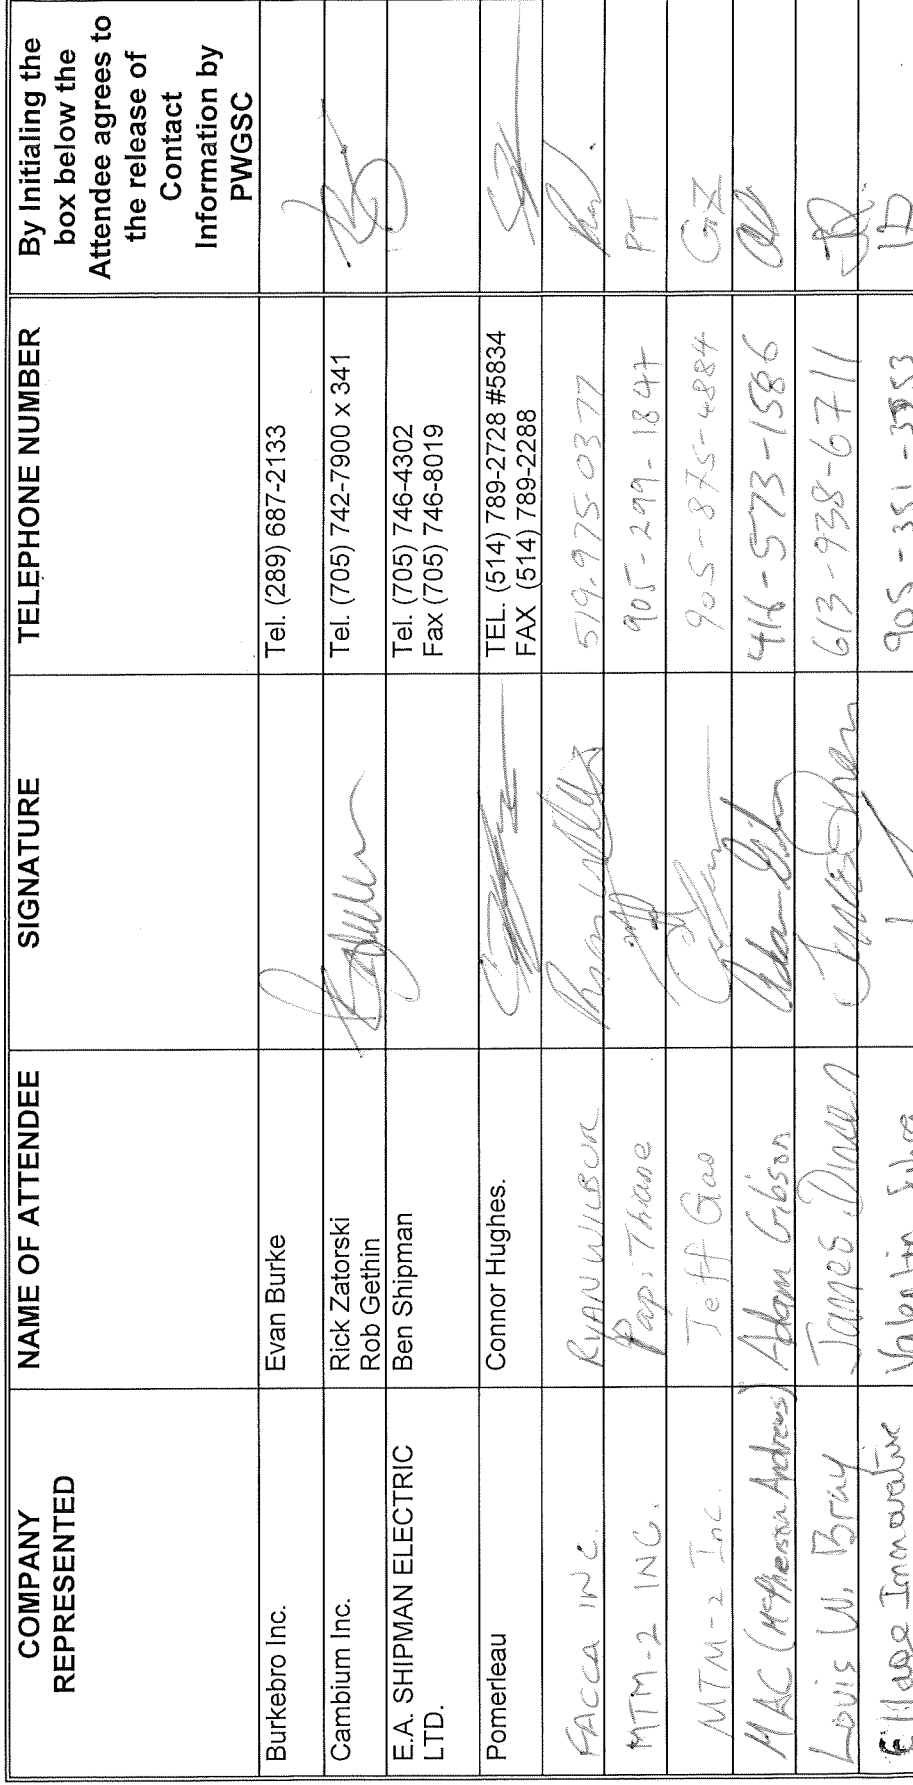 COMPANY
REPRESENTED
NAME OF ATTENDEE
SIGNATURE
TELEPHONE NUMBER
By Initialing the
box below the
Attendee agrees to
the release of
Contact
Information by
PWGSC
Burkebro Inc.
Evan Burke
Tel. (289) 687-2133
Cambium Inc.
Rick Zatorski
Rob Gethin
Tel. (705) 742-7900 x 341
E.A. SHIPMAN ELECTRIC
LTD.
Ben Shipman
Tel. (705) 746-4302
Fax (705) 746-8019
Pomerleau
Connor Hughes.
TEL. (514) 789-2728 #5834
FAX (514) 789-2288
FACCA INC.
RYAN WILBUR
519.975-0377
MTM-2 INC.
Thiane
905-299-1847
PT
MTM-2 Inc.
Jeff Gao
905-875-4884
GZ
MAC (McPherson Andrews)
Adam Gibson
416-573-1586
Louis W. Bray
James
613-938-6711
Innovative
Valentin
905-351-